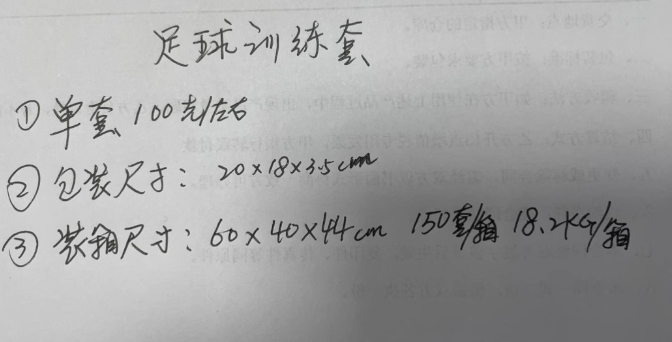 足球训练套
① 单套 100克/左右
② 包装尺寸: 20×18×3.5cm
③ 装箱尺寸: 60×40×44cm 150套/箱 18.2KG/箱